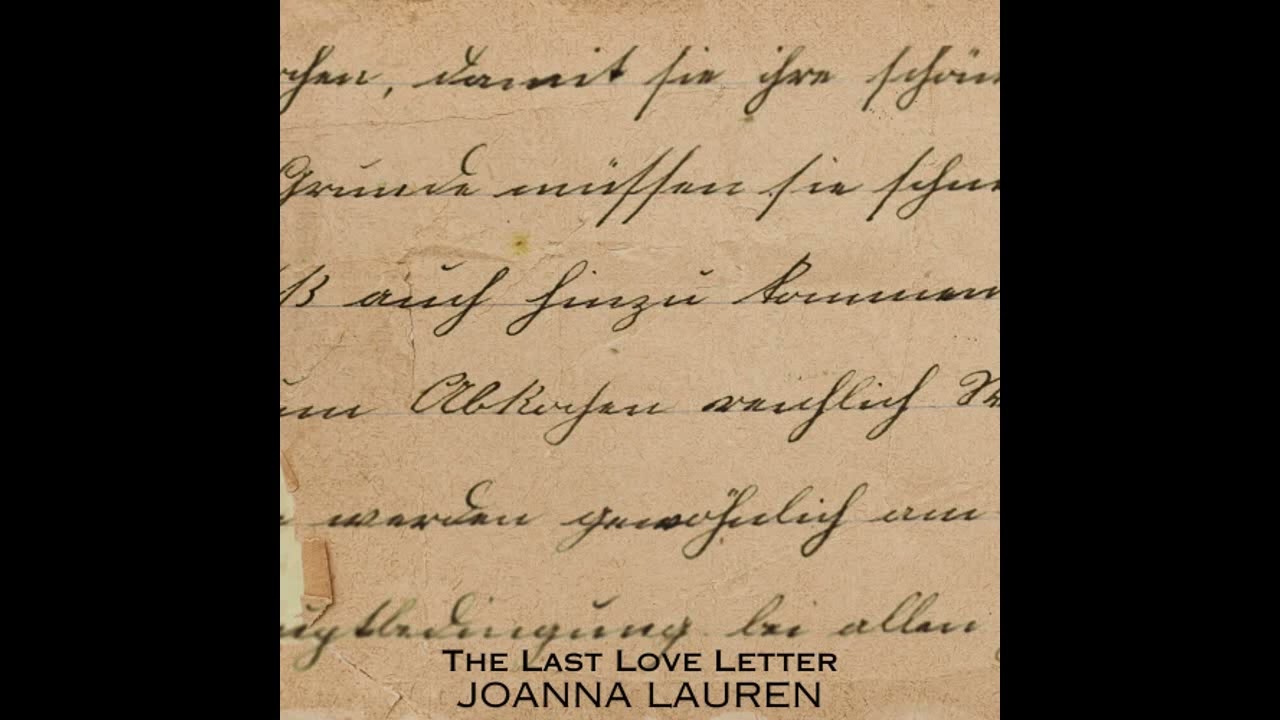 chen, damit sie ihre schön
Grunde müssen sie schne
ß auch hinzu kommen
um Abkochen reichlich
werden gewöhnlich am
uptbedingung bei allen
The Last Love Letter
JOANNA LAUREN